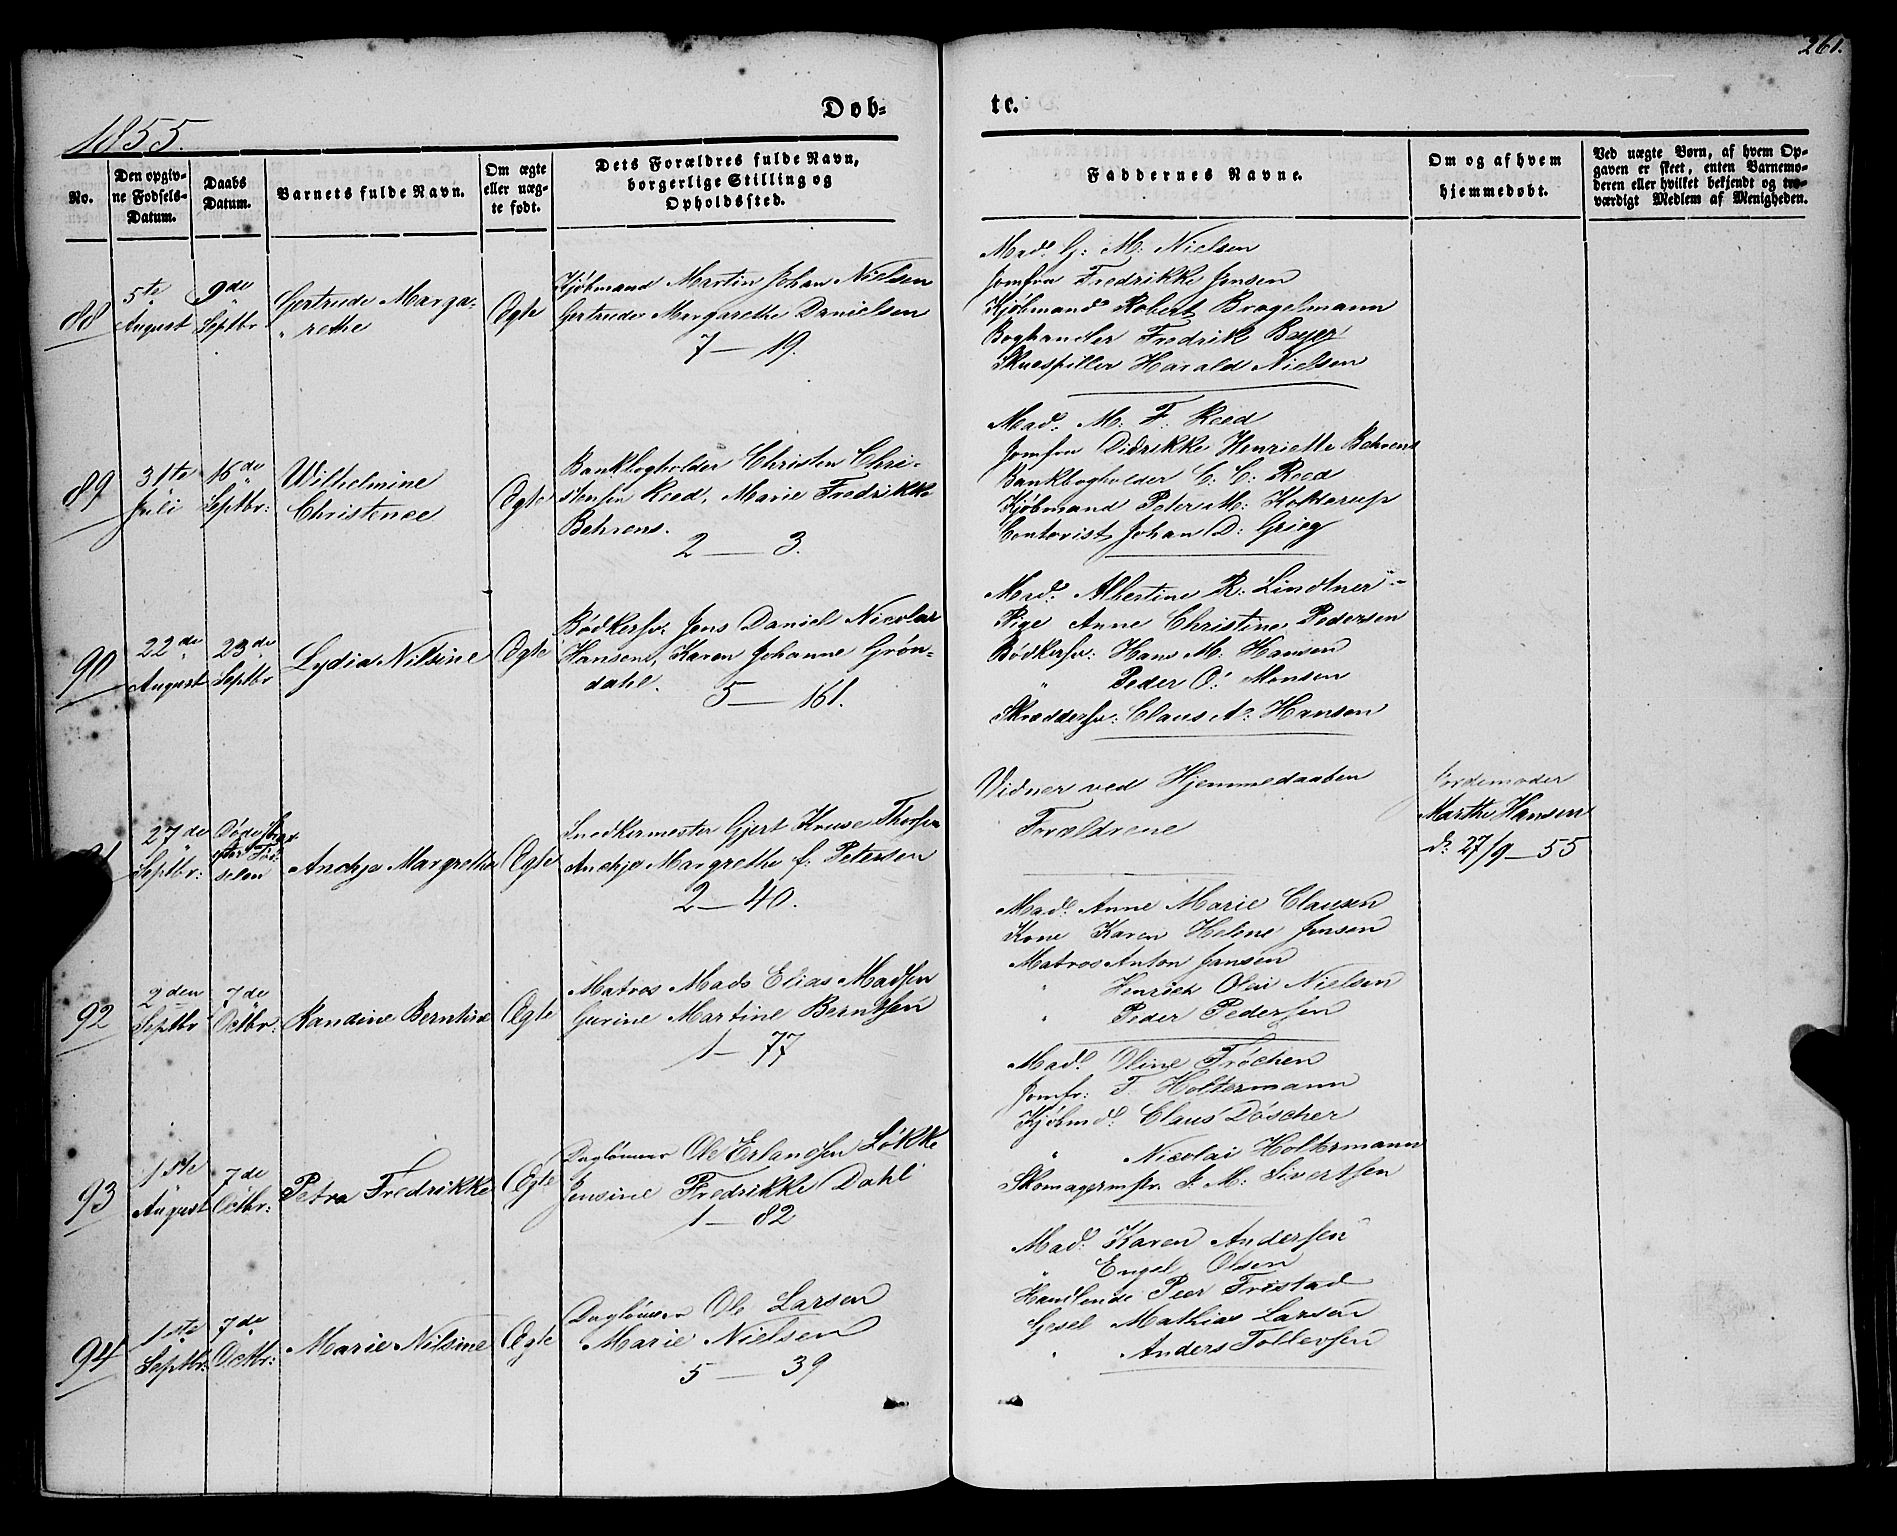 261.
1855.
Døb-
te.
No.
Den opgiv-
ne Fødsels-
Datum.
Daabs
Datum.
Barnets fulde Navn.
Om ægte
eller uæg-
te født.
Dets Forældres fulde Navn,
borgerlige Stilling og
Opholdssted.
Faddernes Navne.
Om og af hvem
hjemmedøbt.
Ved uægte Børn, af hvem Op-
gaven er skeet, enten Barnemo-
deren eller hvilket bekjendt og tro-
værdigt Medlem af Menigheden.
88
5te
August
9de
Septbr
Gertrude Marga-
rethe
Ægte
Kjøbmand Martin Johan Nielsen
Gertruder Margarethe Danielsen
7 — 19.
Mad. G. M. Nielsen
Jomfru Fredrikke Jensen
Kjøbmand Robert Bragelmann
Boghandler Fredrik Beyer
Skuespiller Harald Nielsen
89
31te
Juli
16de
Septbr:
Wilhelmine
Christence
Ægte
Bankbogholder Christen Chri-
stensen Reed, Marie Fredrikke
Behrens.
2 — 3.
Mad. M. F. Reed
Jomfru Didrikke Henriette Behrens
Bankbogholder C. C. Reed
Kjøbmand Peter M: Kolderup
Contorist Johan D: Grieg
90
22de
August
23de
Septbr
Lydia Nilsine
Ægte
Bødkersv: Jens Daniel Nicolai
Hansen, Karen Johanne Grøn-
dahl.
5 — 161.
Mad. Albertine R: Lindtner
Pige Anne Christine Pedersen
Bødkersv: Hans M: Hansen
" Peder O: Monsen
Skræddersv: Claus A: Hansen
27de
Septbr:
Døde strax
efter Fød-
selen
Anchje Margrethe
Ægte
Snedkermester Gjert Kruse Thorsen
Anchje Margrethe f: Petersen
2 — 40.
Vidner ved Hjemmedaaben
Forældrene
Jordemoder
Marthe Hansen
d: 27/9 — 55
92
2den
Septbr
7de
Octbr:
Randine Berntine
Ægte
Matros Mads Elias Madsen
Gurine Martine Berntsen
1 — 77
Mad. Anne Marie Clausen
Kone Karen Helene Jensen
Matros Anton Jansen
" Henrich Olai Nielsen
" Peder Pedersen
93
1ste
August
7de
Octbr:
Petra Fredrikke
Ægte
Daglønner Ole Erlandsen Løkke
Jensine Fredrikke Dahl
1 — 82
Mad. Oline Frøchen
Jomfr: T. Holtermann
Kjøbmd: Claus Döscher
" Nicolai Holtermann
Skomagermstr. J. M: Sivertsen
94
1ste
Septbr:
7de
Octbr:
Marie Nilsine
Ægte
Dagløner Ole Larsen
Marie Nielsen
5 — 39
Mad. Karen Andersen
" Engel Olsen
Handlende Peer Fristad
Gesel Mathias Larsen
" Anders Tollevsen